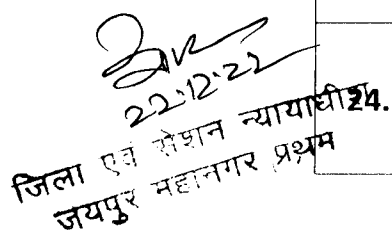 22.12.22
जिला एवं सेशन न्यायाधीश 24.
जयपुर महानगर प्रथम